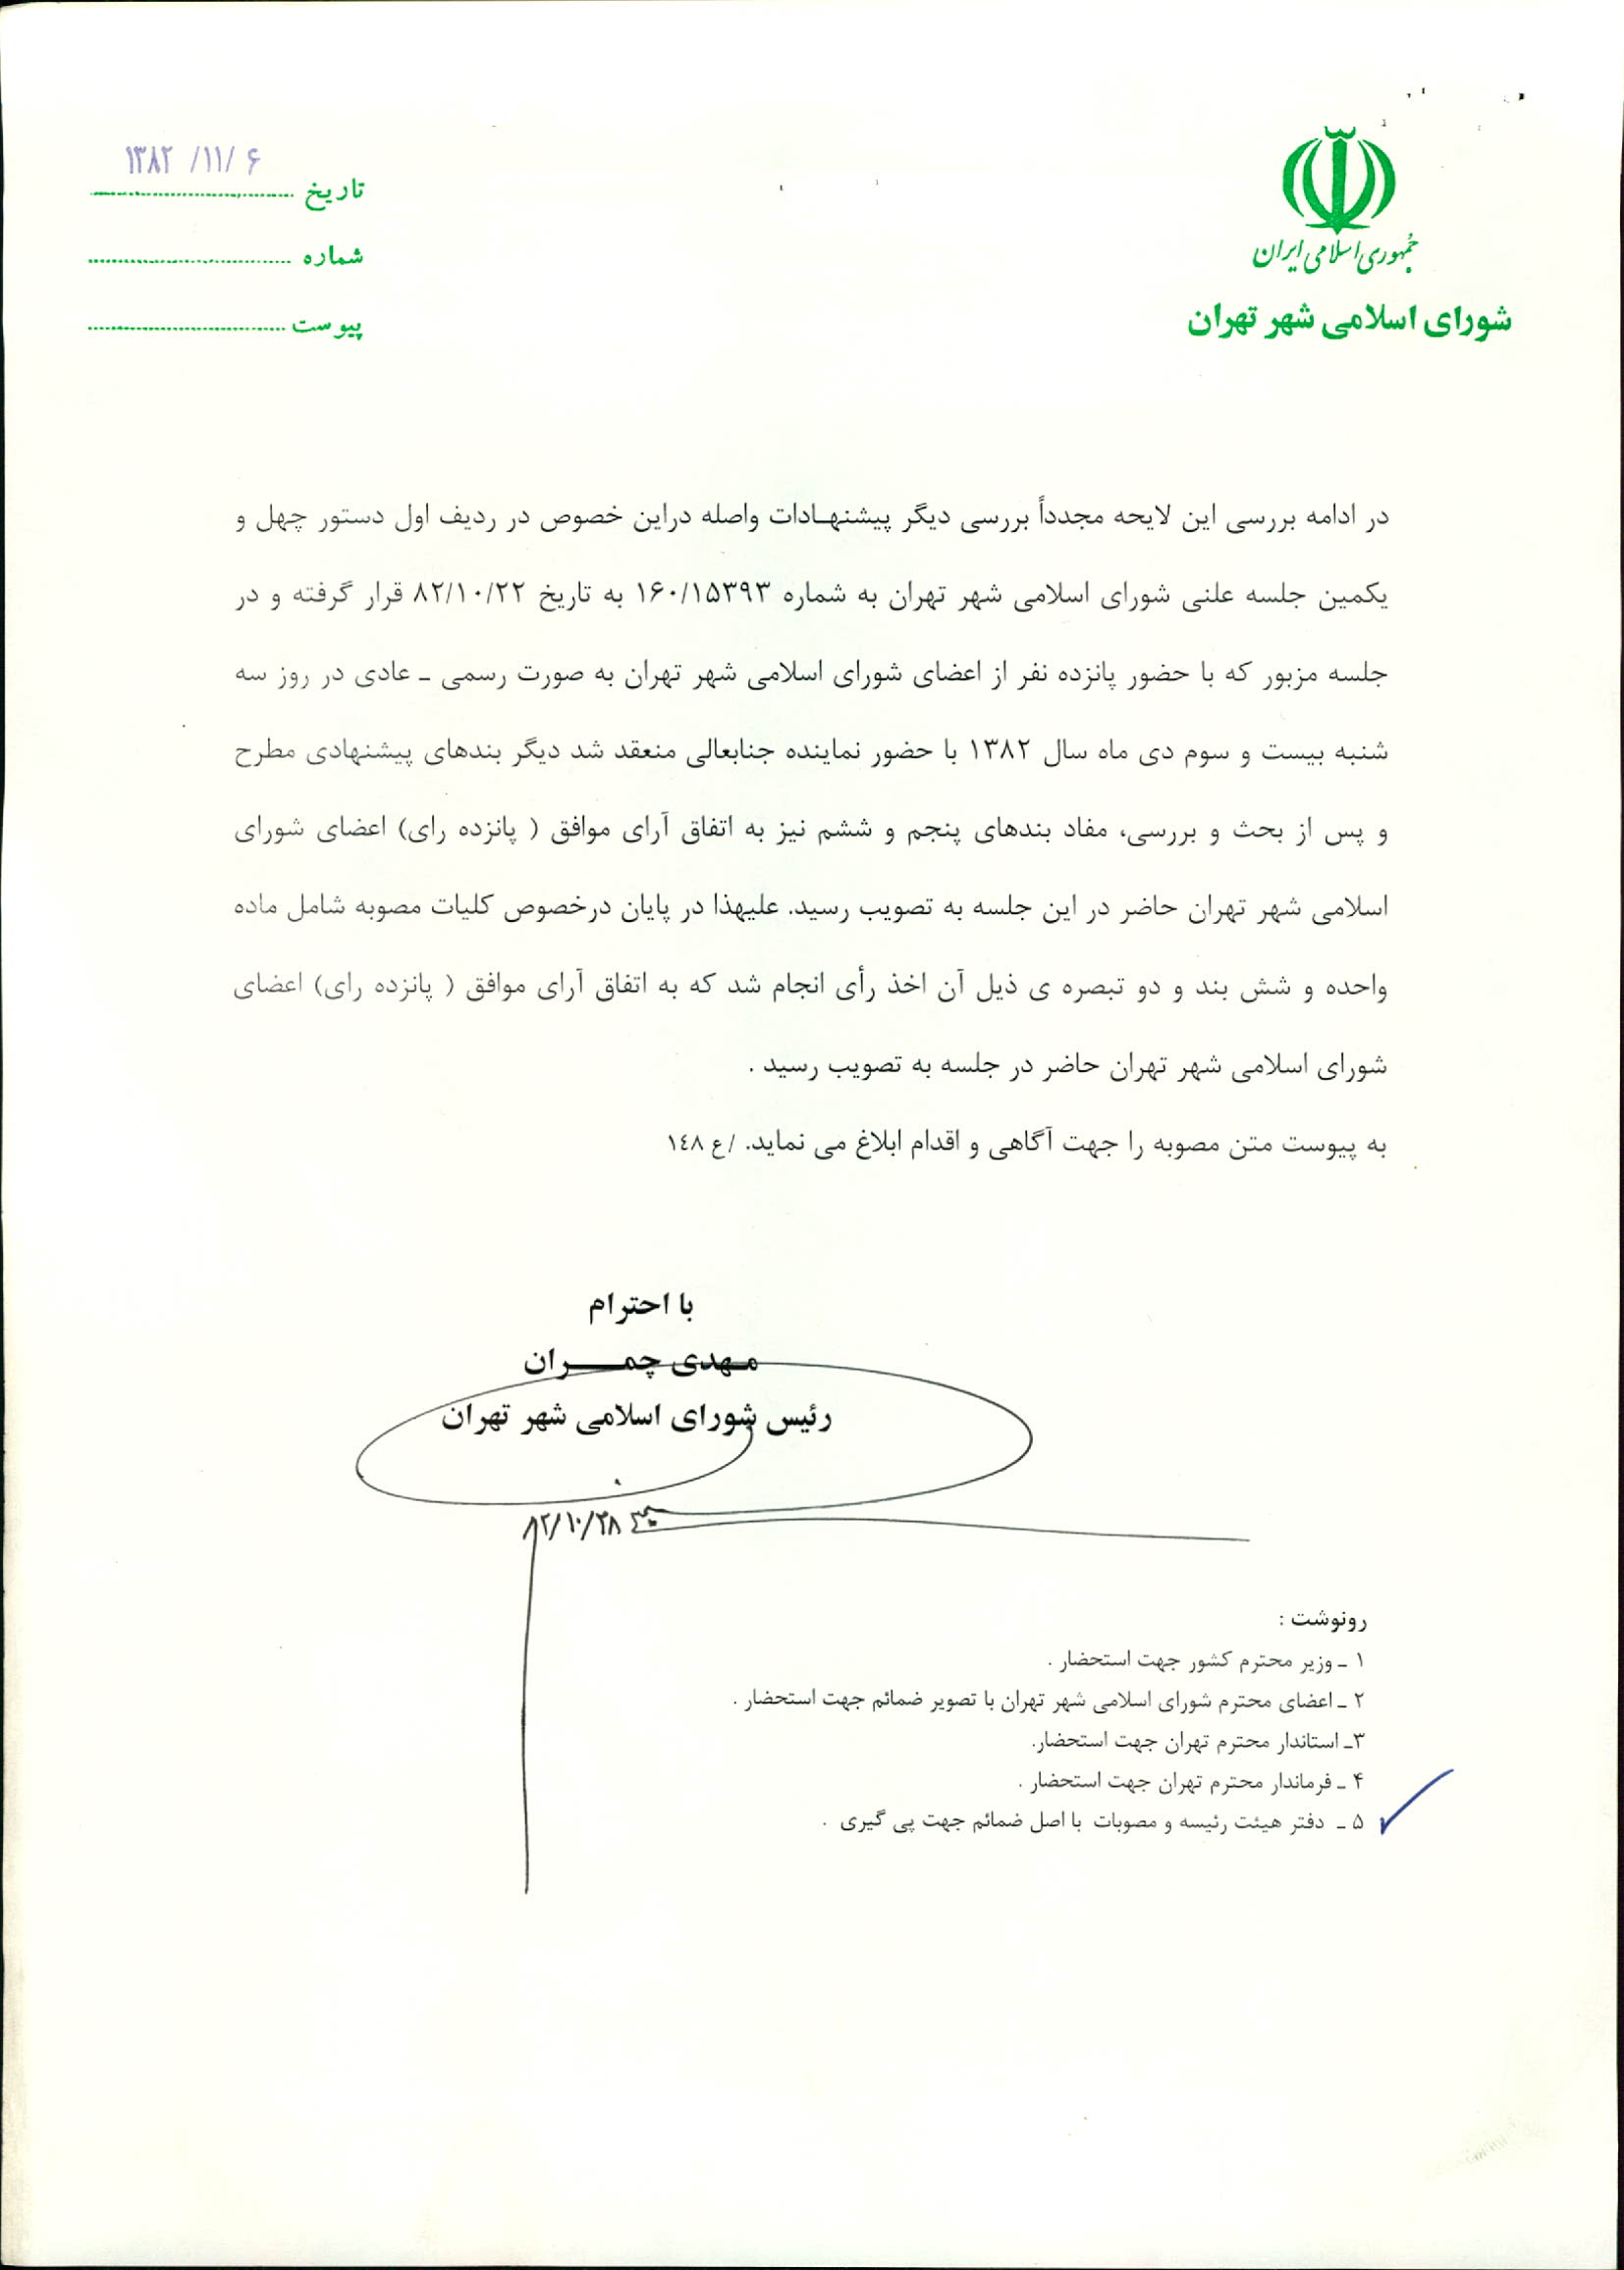 جمهوری اسلامی ایران
شورای اسلامی شهر تهران
تاریخ ۱۳۸۲ /۱۱/ ۶
شماره
پیوست
در ادامه بررسی این لایحه مجدداً بررسی دیگر پیشنهادات واصله دراین خصوص در ردیف اول دستور چهل و
یکمین جلسه علنی شورای اسلامی شهر تهران به شماره ۱۶۰/۱۵۳۹۳ به تاریخ ۸۲/۱۰/۲۲ قرار گرفته و در
جلسه مزبور که با حضور پانزده نفر از اعضای شورای اسلامی شهر تهران به صورت رسمی ـ عادی در روز سه
شنبه بیست و سوم دی ماه سال ۱۳۸۲ با حضور نماینده جنابعالی منعقد شد دیگر بندهای پیشنهادی مطرح
و پس از بحث و بررسی، مفاد بندهای پنجم و ششم نیز به اتفاق آرای موافق ( پانزده رای) اعضای شورای
اسلامی شهر تهران حاضر در این جلسه به تصویب رسید. علیهذا در پایان درخصوص کلیات مصوبه شامل ماده
واحده و شش بند و دو تبصره ی ذیل آن اخذ رأی انجام شد که به اتفاق آرای موافق ( پانزده رای) اعضای
شورای اسلامی شهر تهران حاضر در جلسه به تصویب رسید .
به پیوست متن مصوبه را جهت آگاهی و اقدام ابلاغ می نماید. /ع ۱۴۸
با احترام
مهدی چمران
رئیس شورای اسلامی شهر تهران
۸۲/۱۰/۲۸
رونوشت :
۱ ـ وزیر محترم کشور جهت استحضار .
۲ ـ اعضای محترم شورای اسلامی شهر تهران با تصویر ضمائم جهت استحضار .
۳ـ استاندار محترم تهران جهت استحضار.
۴ ـ فرماندار محترم تهران جهت استحضار .
۵ ـ دفتر هیئت رئیسه و مصوبات با اصل ضمائم جهت پی گیری .